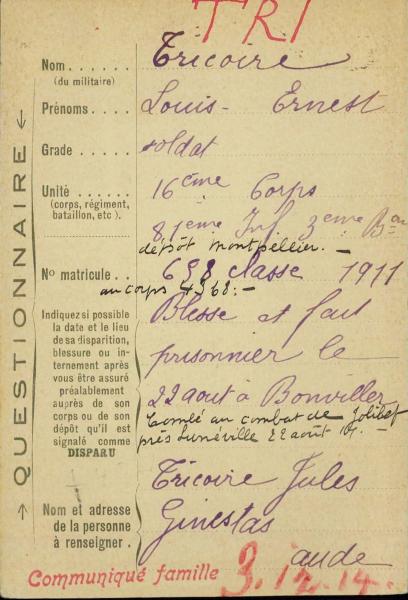 TRI
Nom ..... Tricoire
(du militaire)
Prénoms .... Louis - Ernest
Grade ..... soldat
Unité ...... 16eme Corps
(corps, régiment, bataillon, etc).
81eme Inf 3eme Bon
dépôt Montpellier. -
No matricule .. 658 classe 1911
au corps 4368: -
Indiquez si possible
la date et le lieu
de sa disparition,
blessure ou in-
ternement après
vous être assuré
préalablement
auprès de son
corps ou de son
dépôt qu'il est
signalé comme
DISPARU
Blessé et fait
prisonnier le
22 aout à Bonviller
Tombé au combat de Jolibet
près Lunéville 22 août
Tricoire Jules
Nom et adresse
de la personne
à renseigner.
Ginestas
aude
Communiqué famille 3.12.14.
← QUESTIONNAIRE →